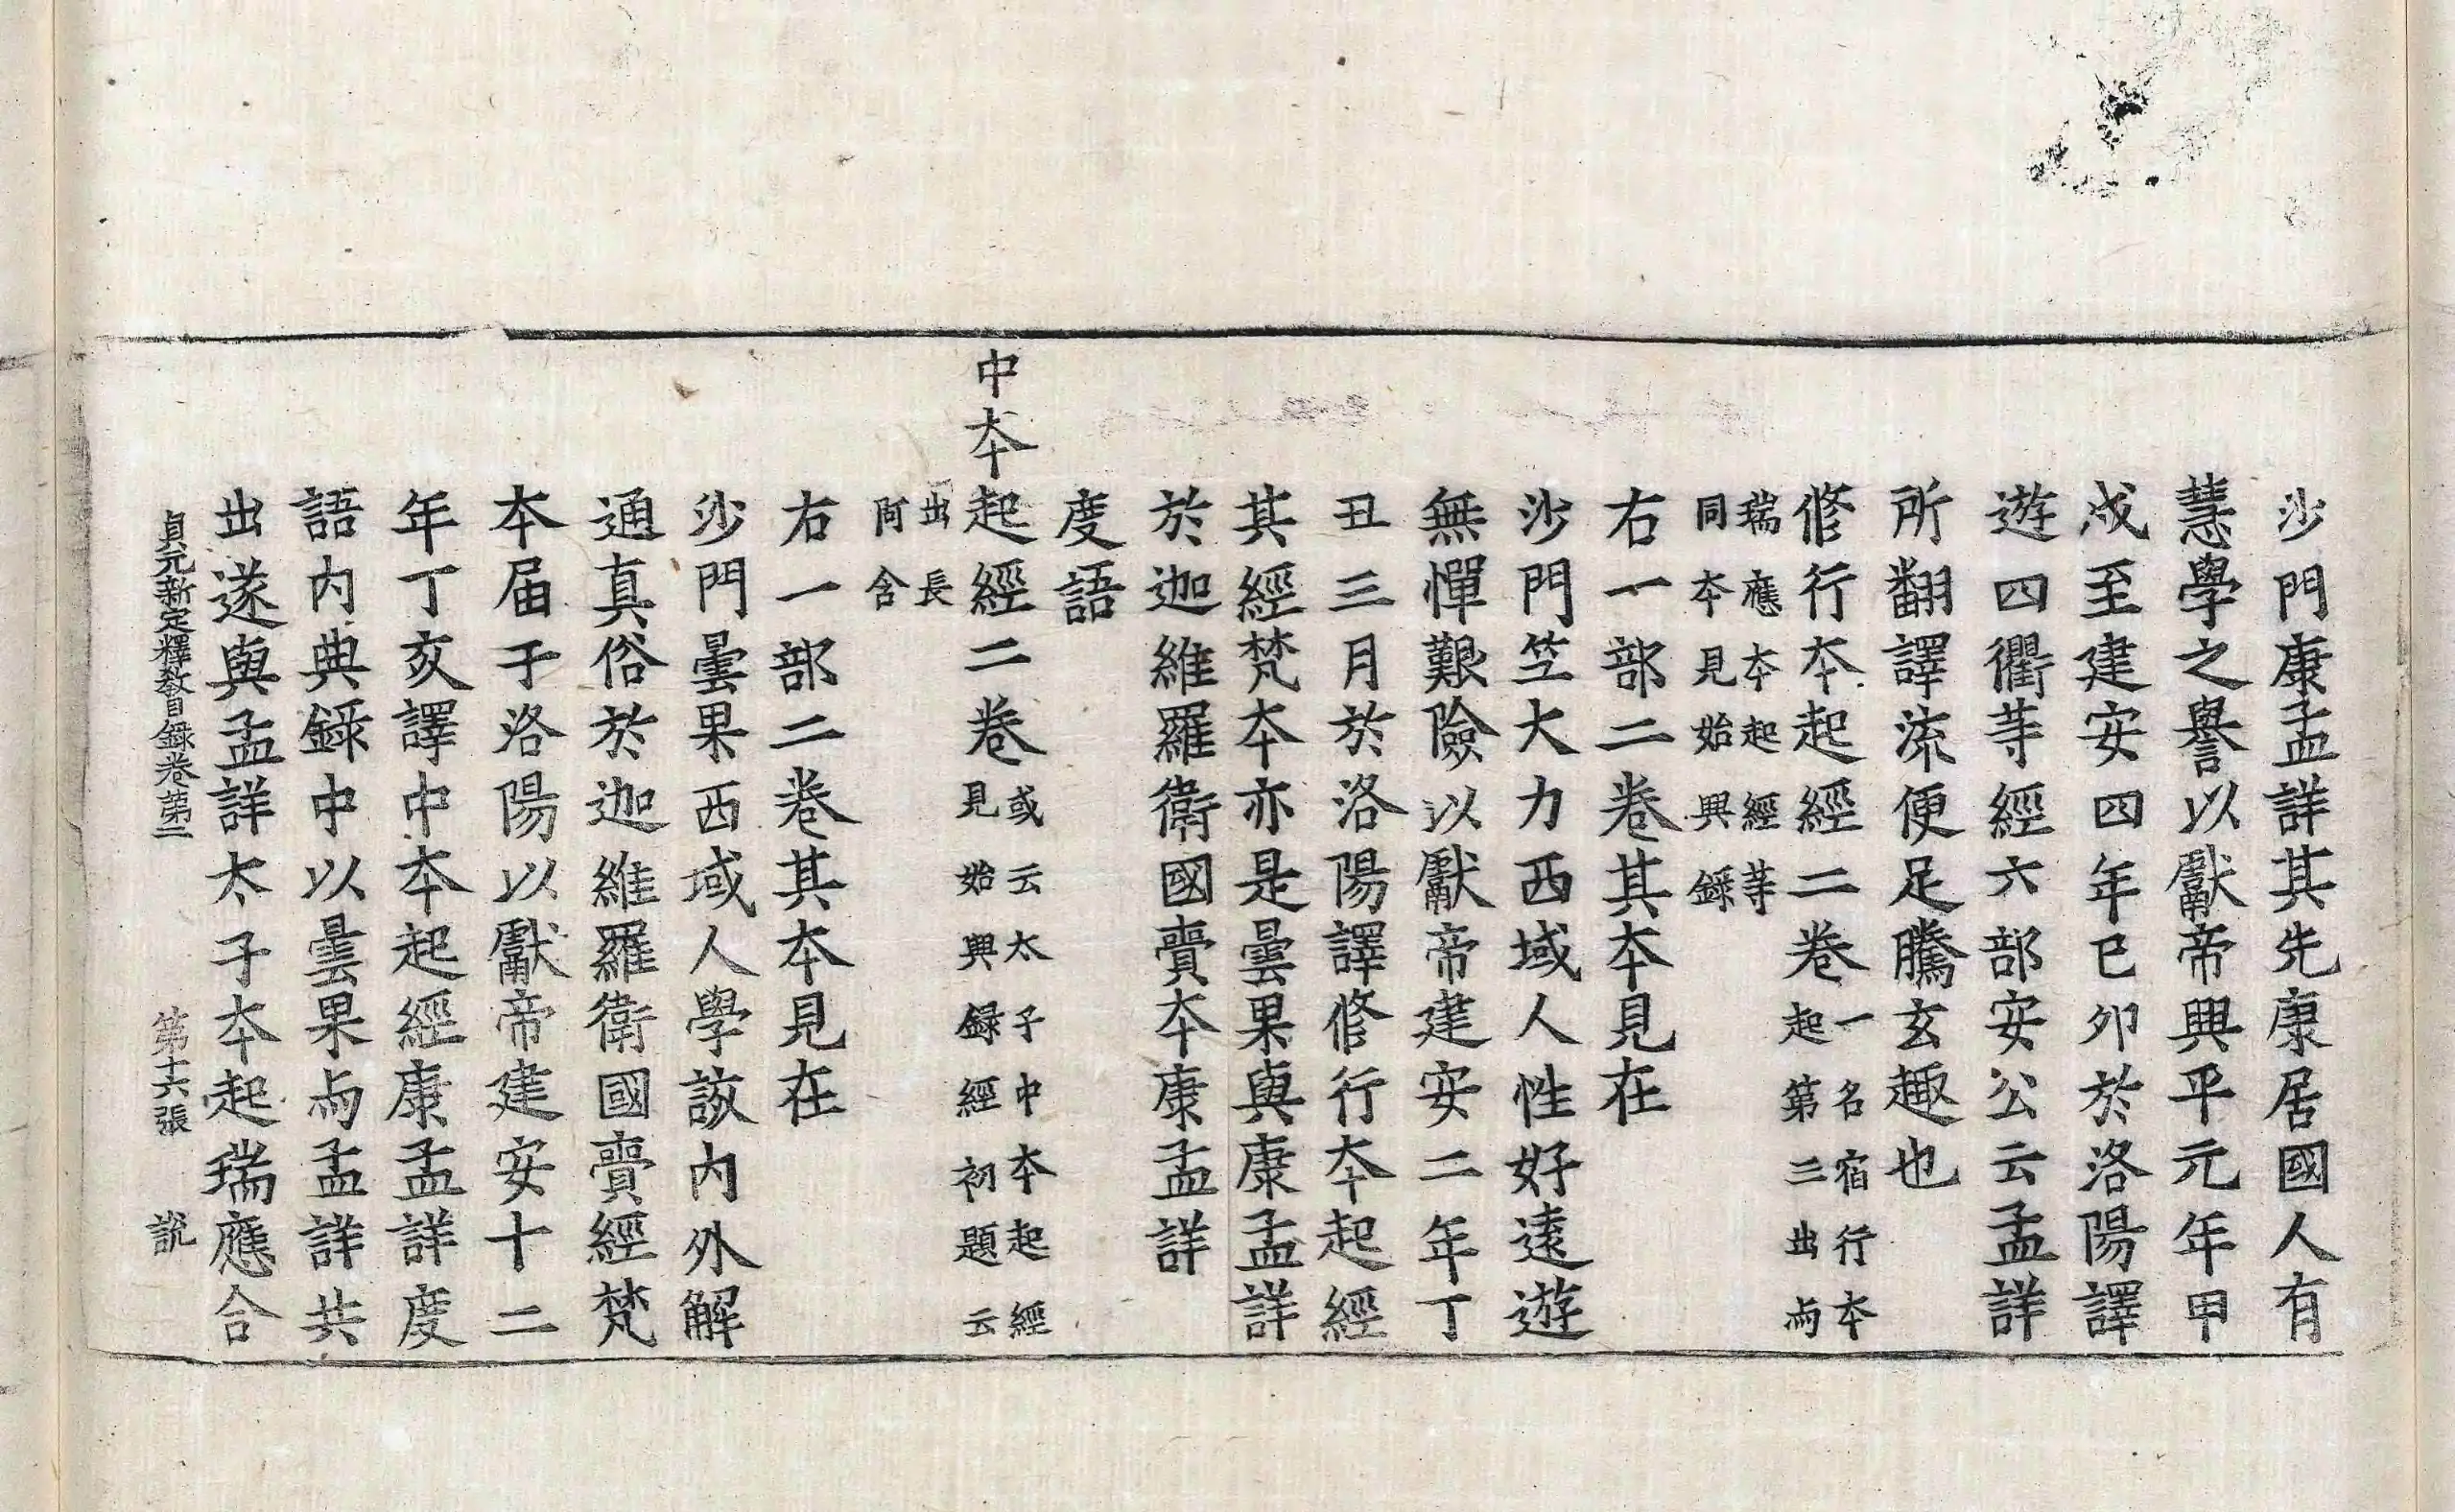 沙門康孟詳其先康居國人有
慧學之譽以獻帝興平元年甲
戌至建安四年已卯於洛陽譯
遊四衢等經六部安公云孟詳
所翻譯流便足騰玄趣也
修行本起經二卷一名宿行本起第三出與
瑞應本起經等同本見始興錄
右一部二卷其本見在
沙門竺大力西域人性好遠遊
無憚艱險以獻帝建安二年丁
丑三月於洛陽譯修行本起經
其經梵本亦是曇果與康孟詳
於迦維羅衛國賷本康孟詳
度語
中本起經二卷或云太子中本起經見始興録經初題云
出長阿含
右一部二卷其本見在
沙門曇果西域人學該內外解
通真俗於迦維羅衛國賷經梵
本届于洛陽以獻帝建安十二
年丁亥譯中本起經康孟詳度
語內典錄中以曇果与孟詳共
出遂與孟詳太子本起瑞應合
貞元新定釋教目錄卷第二 第十六張 說